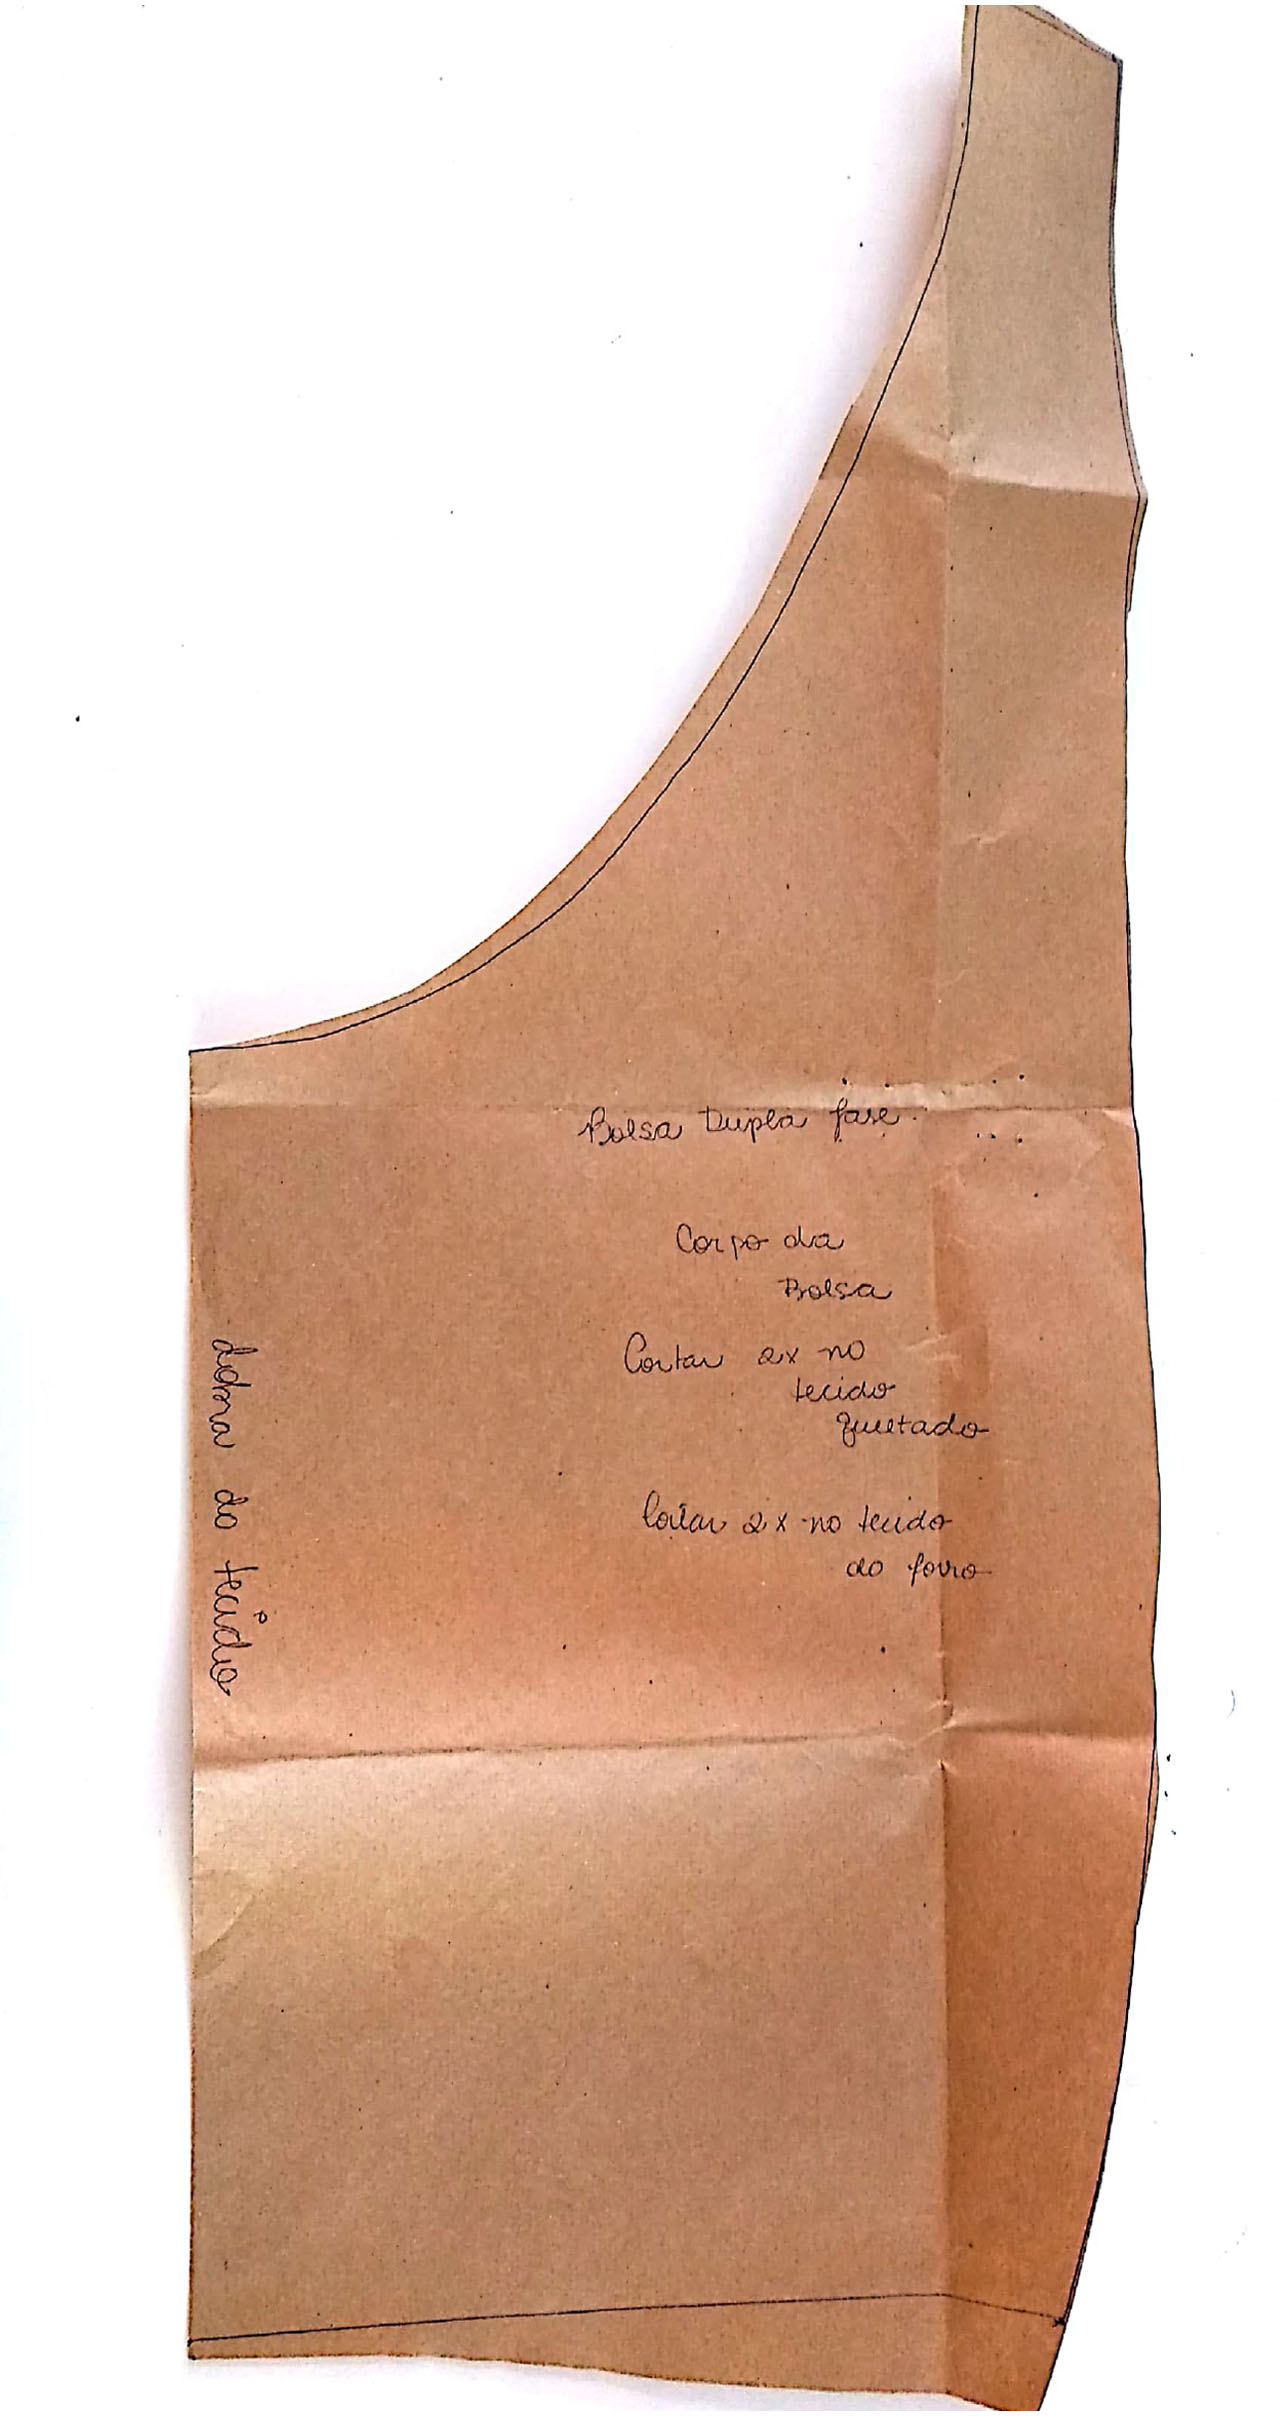 Bolsa Dupla fase.
Corpo da
Bolsa
Cortar 2x no
tecido
quiltado
Cortar 2x no tecido
do forro
dobra do tecido